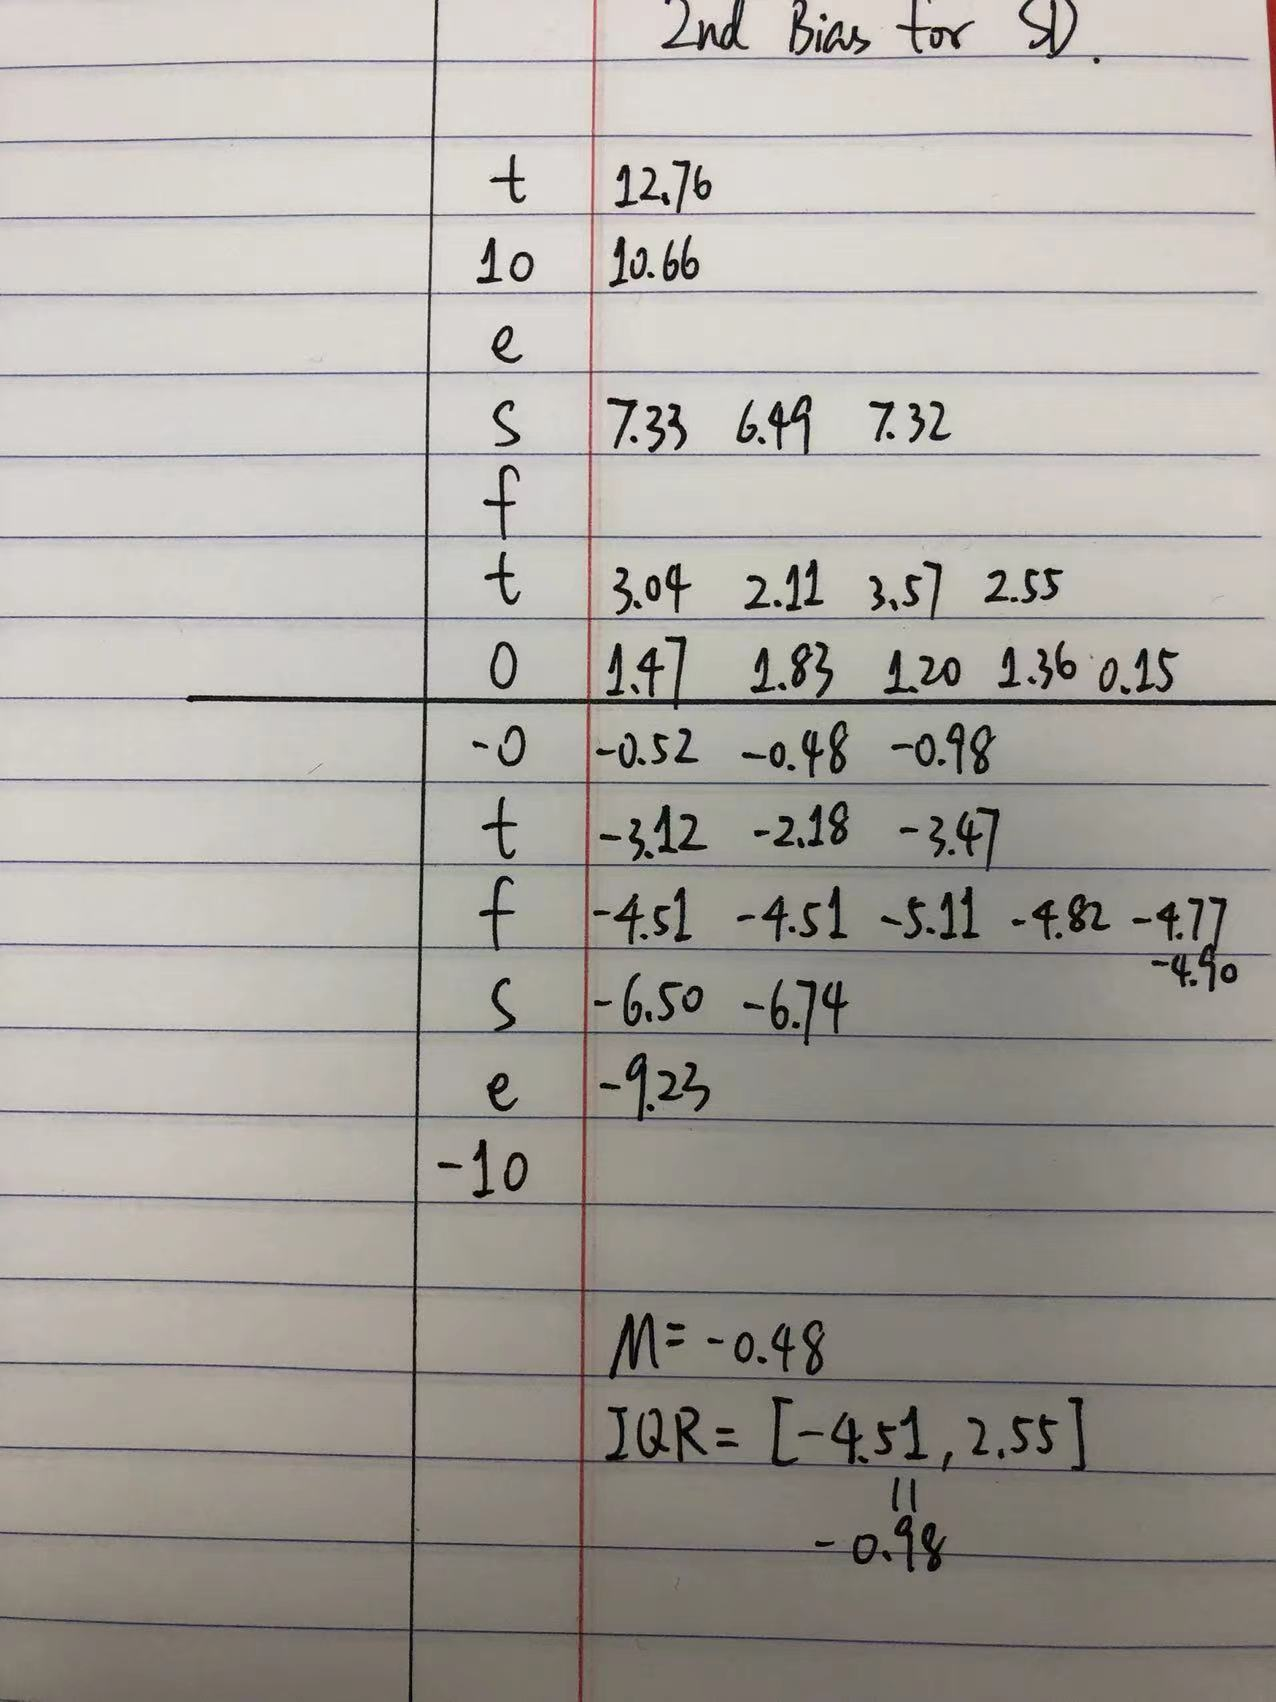 2nd Bias for SD.
t 12.76
10 10.66
e
s 7.33 6.49 7.32
f
t 3.04 2.11 3.57 2.55
0 1.47 1.83 1.20 1.36 0.15
-0 -0.52 -0.48 -0.98
t -3.12 -2.18 -3.47
f -4.51 -4.51 -5.11 -4.82 -4.77
-4.90
s -6.50 -6.74
e -9.23
-10
M= -0.48
IQR= [-4.51, 2.55]
||
-0.98